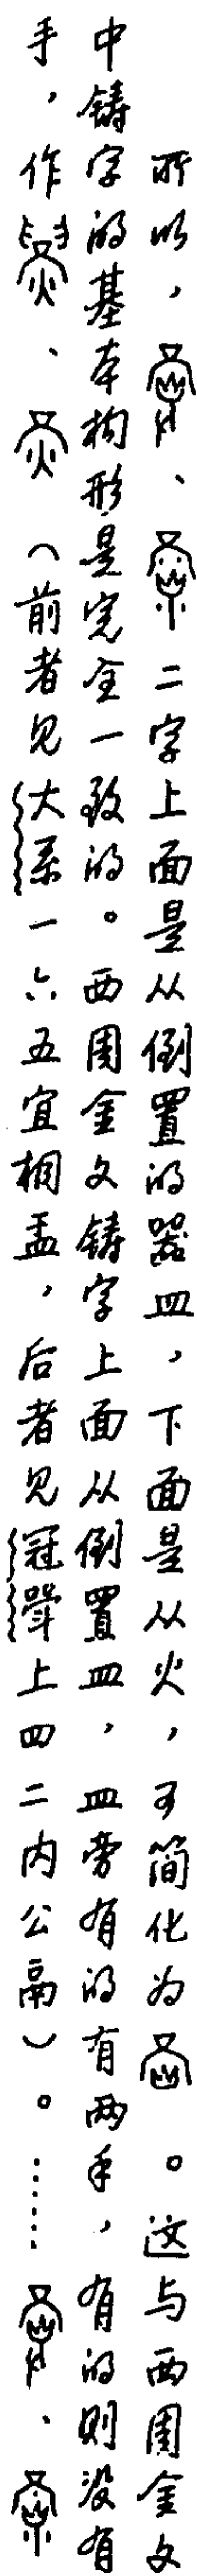 所以，、二字上面是从倒置的器皿，下面是从火，可简化为。这与西周金文
中铸字的基本构形是完全一致的。西周金文铸字上面从倒置皿，皿旁有的有两手，有的则没有
手，作、（前者见大系一六五宜相盂，后者见冠斝上四二内公鬲）。……、